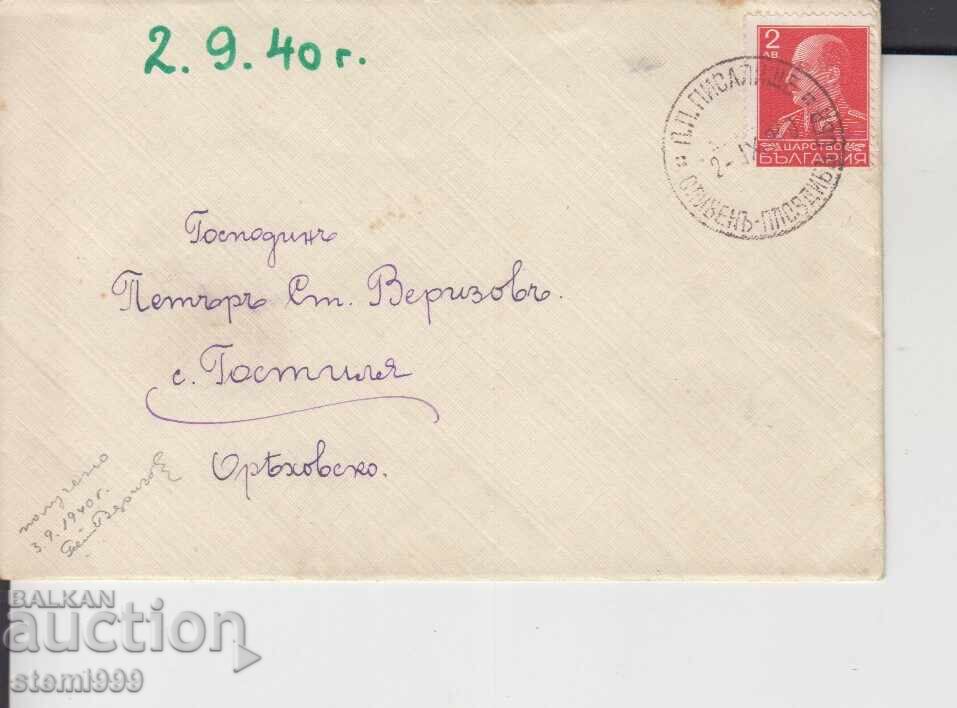 2. 9. 40 г.
2
ЛВ
ЦАРСТВО
БЪЛГАРИЯ
П.П.ПИСАЛИЩЕ
СЛИВЕНЪ-ПЛОВДИВЪ
2-IX
Господинъ
Петъръ Ст. Веризовъ.
с. Гостиля
Орѣховско.
получено
3.9.1940 г.
Веризовъ
BALKAN
auction
stemi999